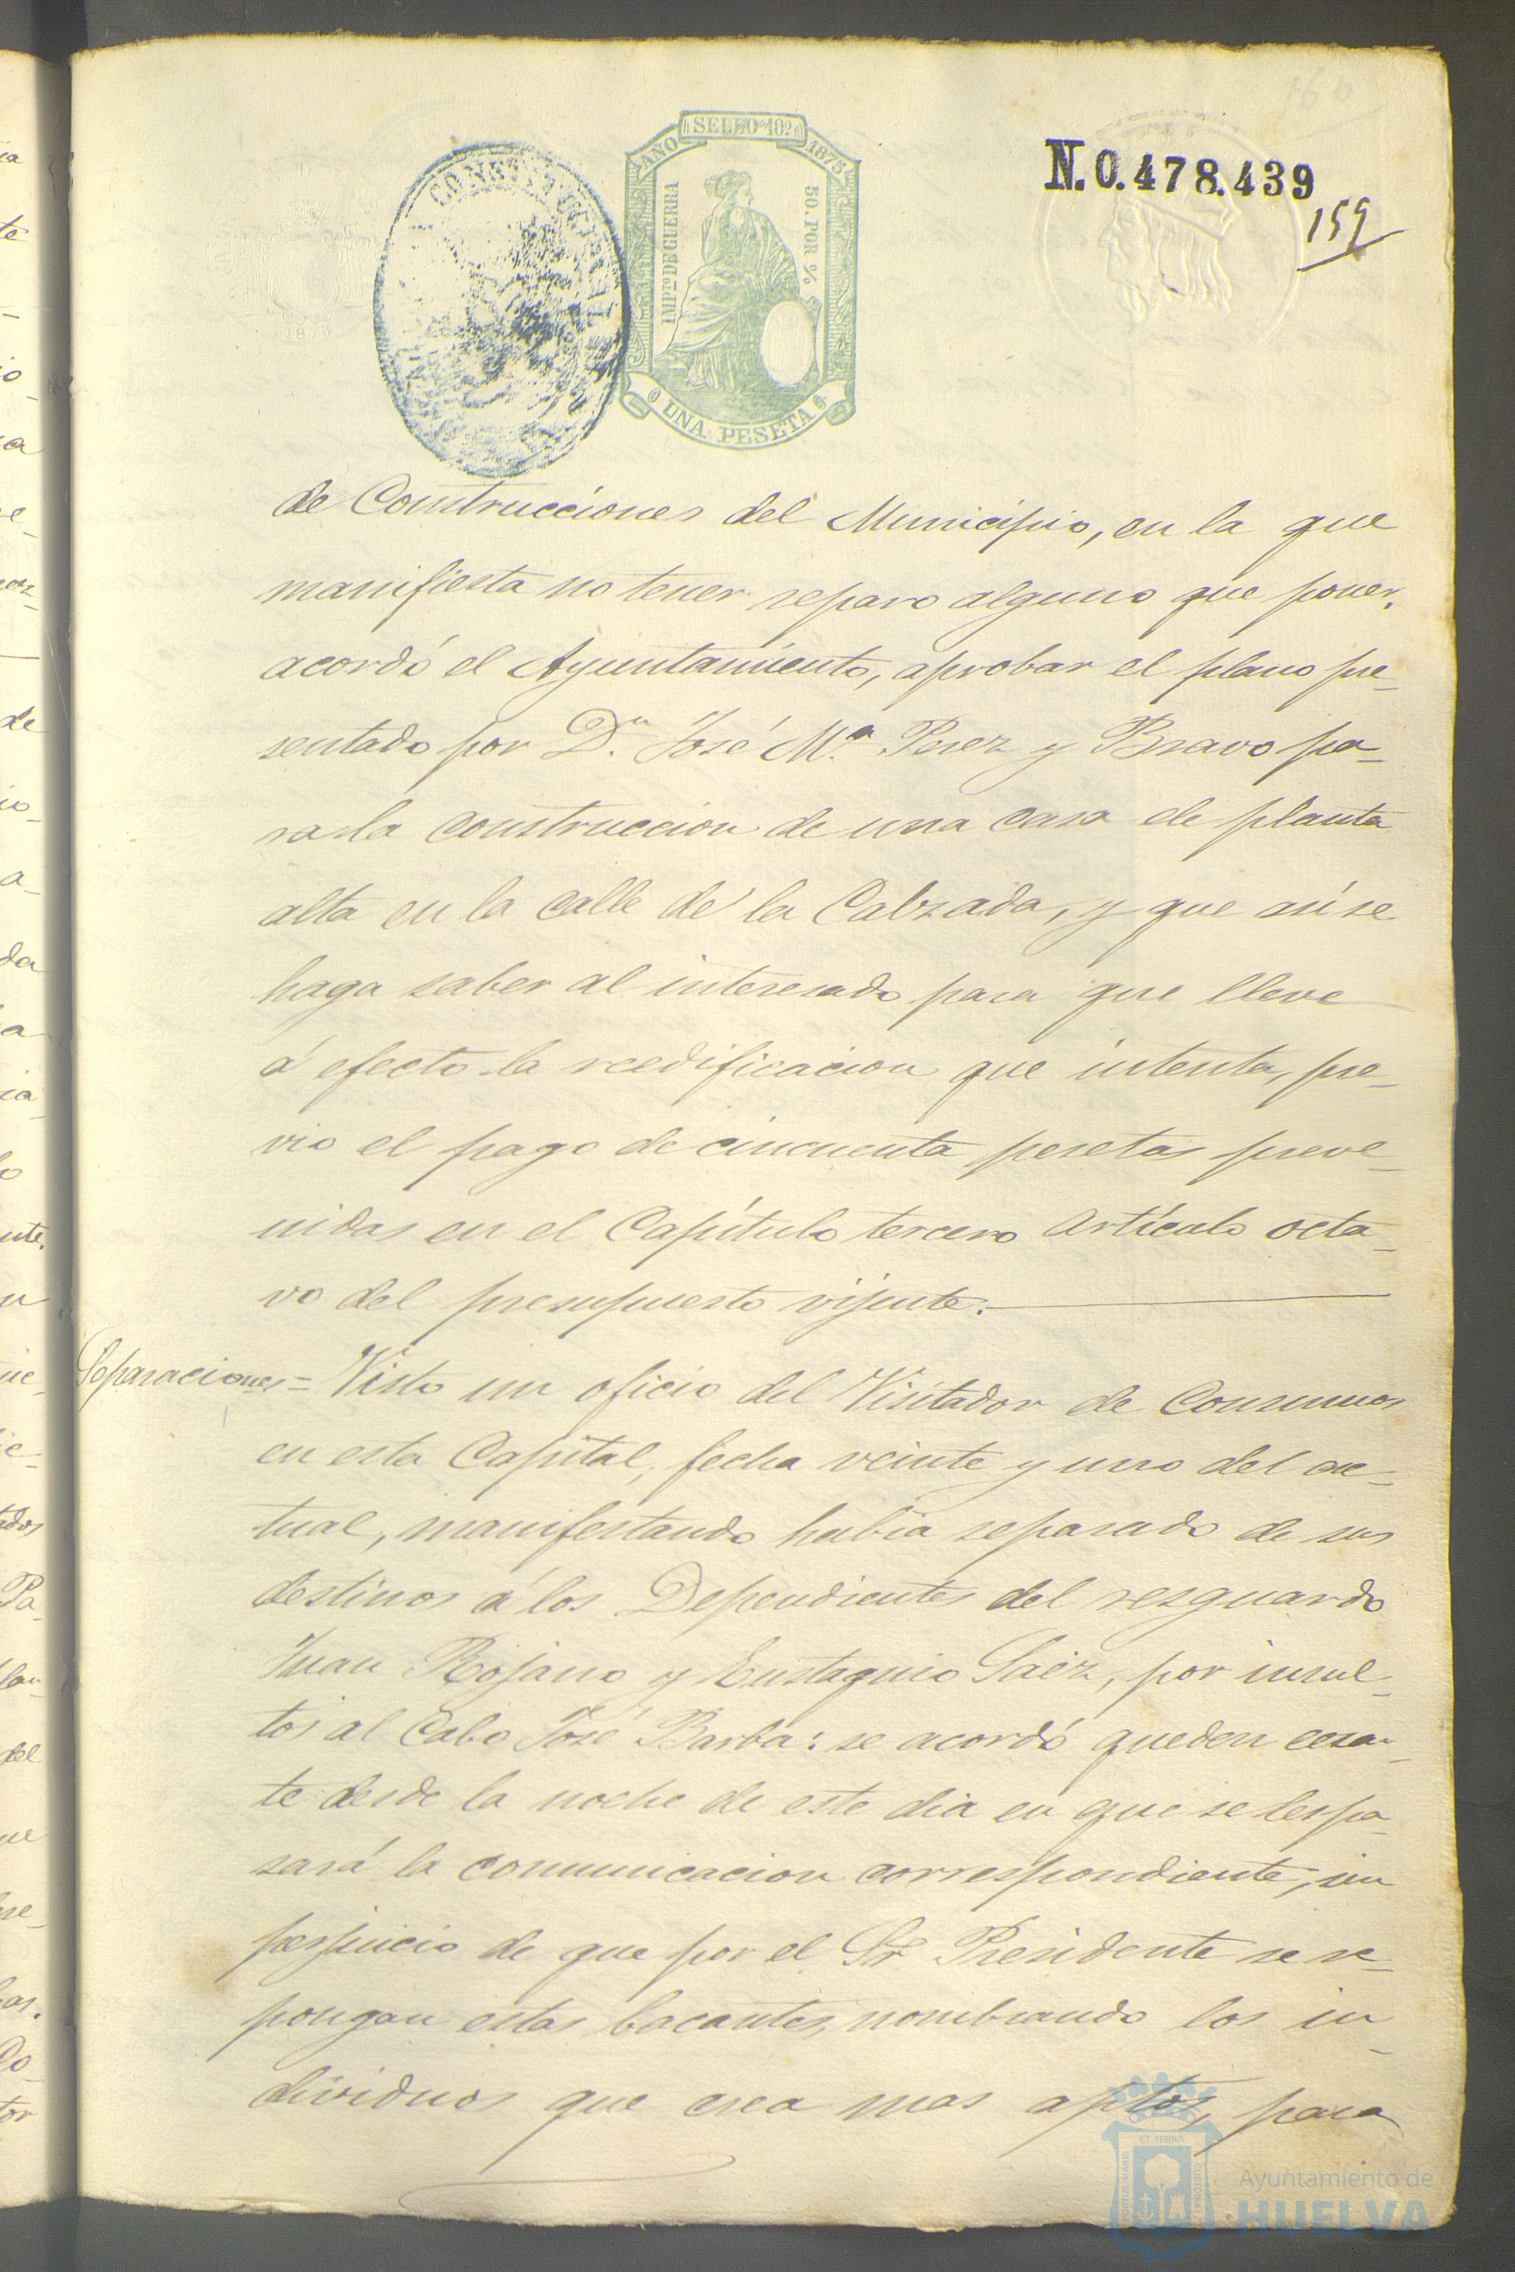 160
AÑO SELLO 10º 1875
IMPTO DE GUERRA
50. POR %
UNA PESETA
N. 0.478.439
159
de Construcciones del Municipio, en la que
manifiesta no tener reparo alguno que poner.
acordó el Ayuntamiento, aprobar el plano pre-
sentado por D.n José M.a Perez y Bravo pa-
ra la construccion de una casa de planta
alta en la calle de la Calzada, y que así se
haga saber al interesado para que lleve
á efecto la reedificacion que intenta, pre-
vio el pago de cincuenta pesetas preve-
nidas en el Capítulo tercero Artículo octa-
vo del presupuesto vijente.
Separaciones = Visto un oficio del Visitador de Consumos
en esta Capital, fecha veinte y uno del ac-
tual, manifestando habia separado de sus
destinos á los Dependientes del resguardo
Juan Rojano y Eustaquio Saez, por insul-
tos al Cabo José Barba: se acordó queden cesan-
te desde la noche de este dia en que se les pa-
sará la comunicacion correspondiente, sin
perjuicio de que por el Sr. Presidente se re-
pongan estas bacantes, nombrando los in-
dividuos que crea mas aptos, para
ET TERRÆ
Ayuntamiento de
HUELVA